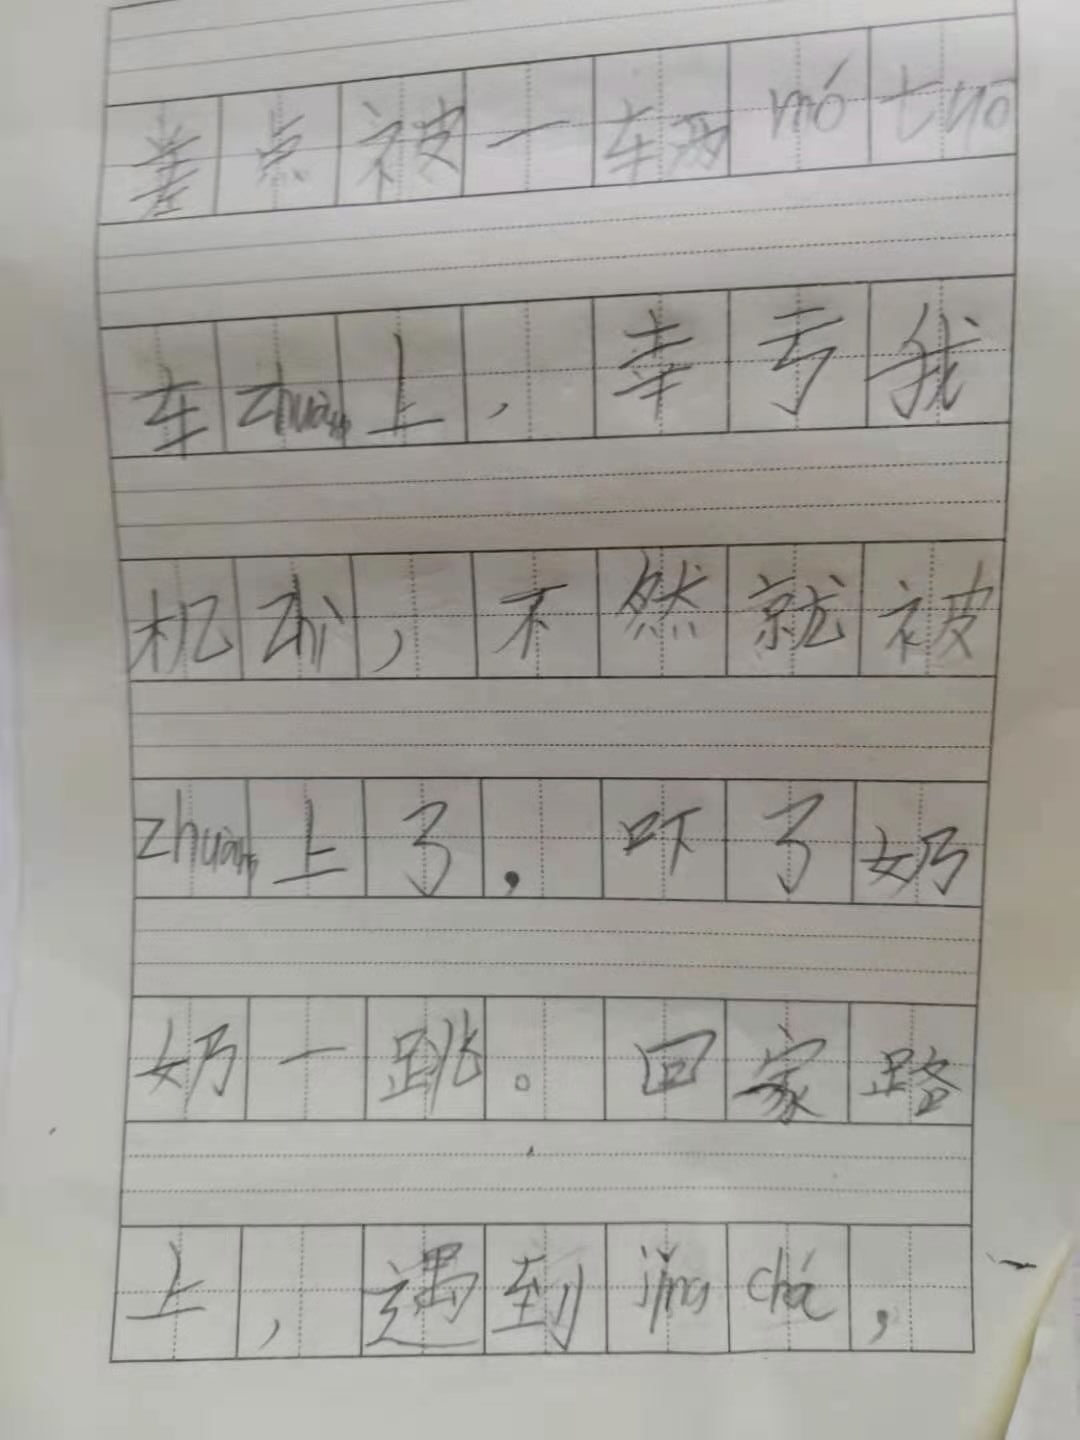 差点被一辆mótuō
车zhuàng上，幸亏我
机zhì，不然就被
zhuàng上了．吓了奶
奶一跳。回家路
上，遇到jǐngchá，